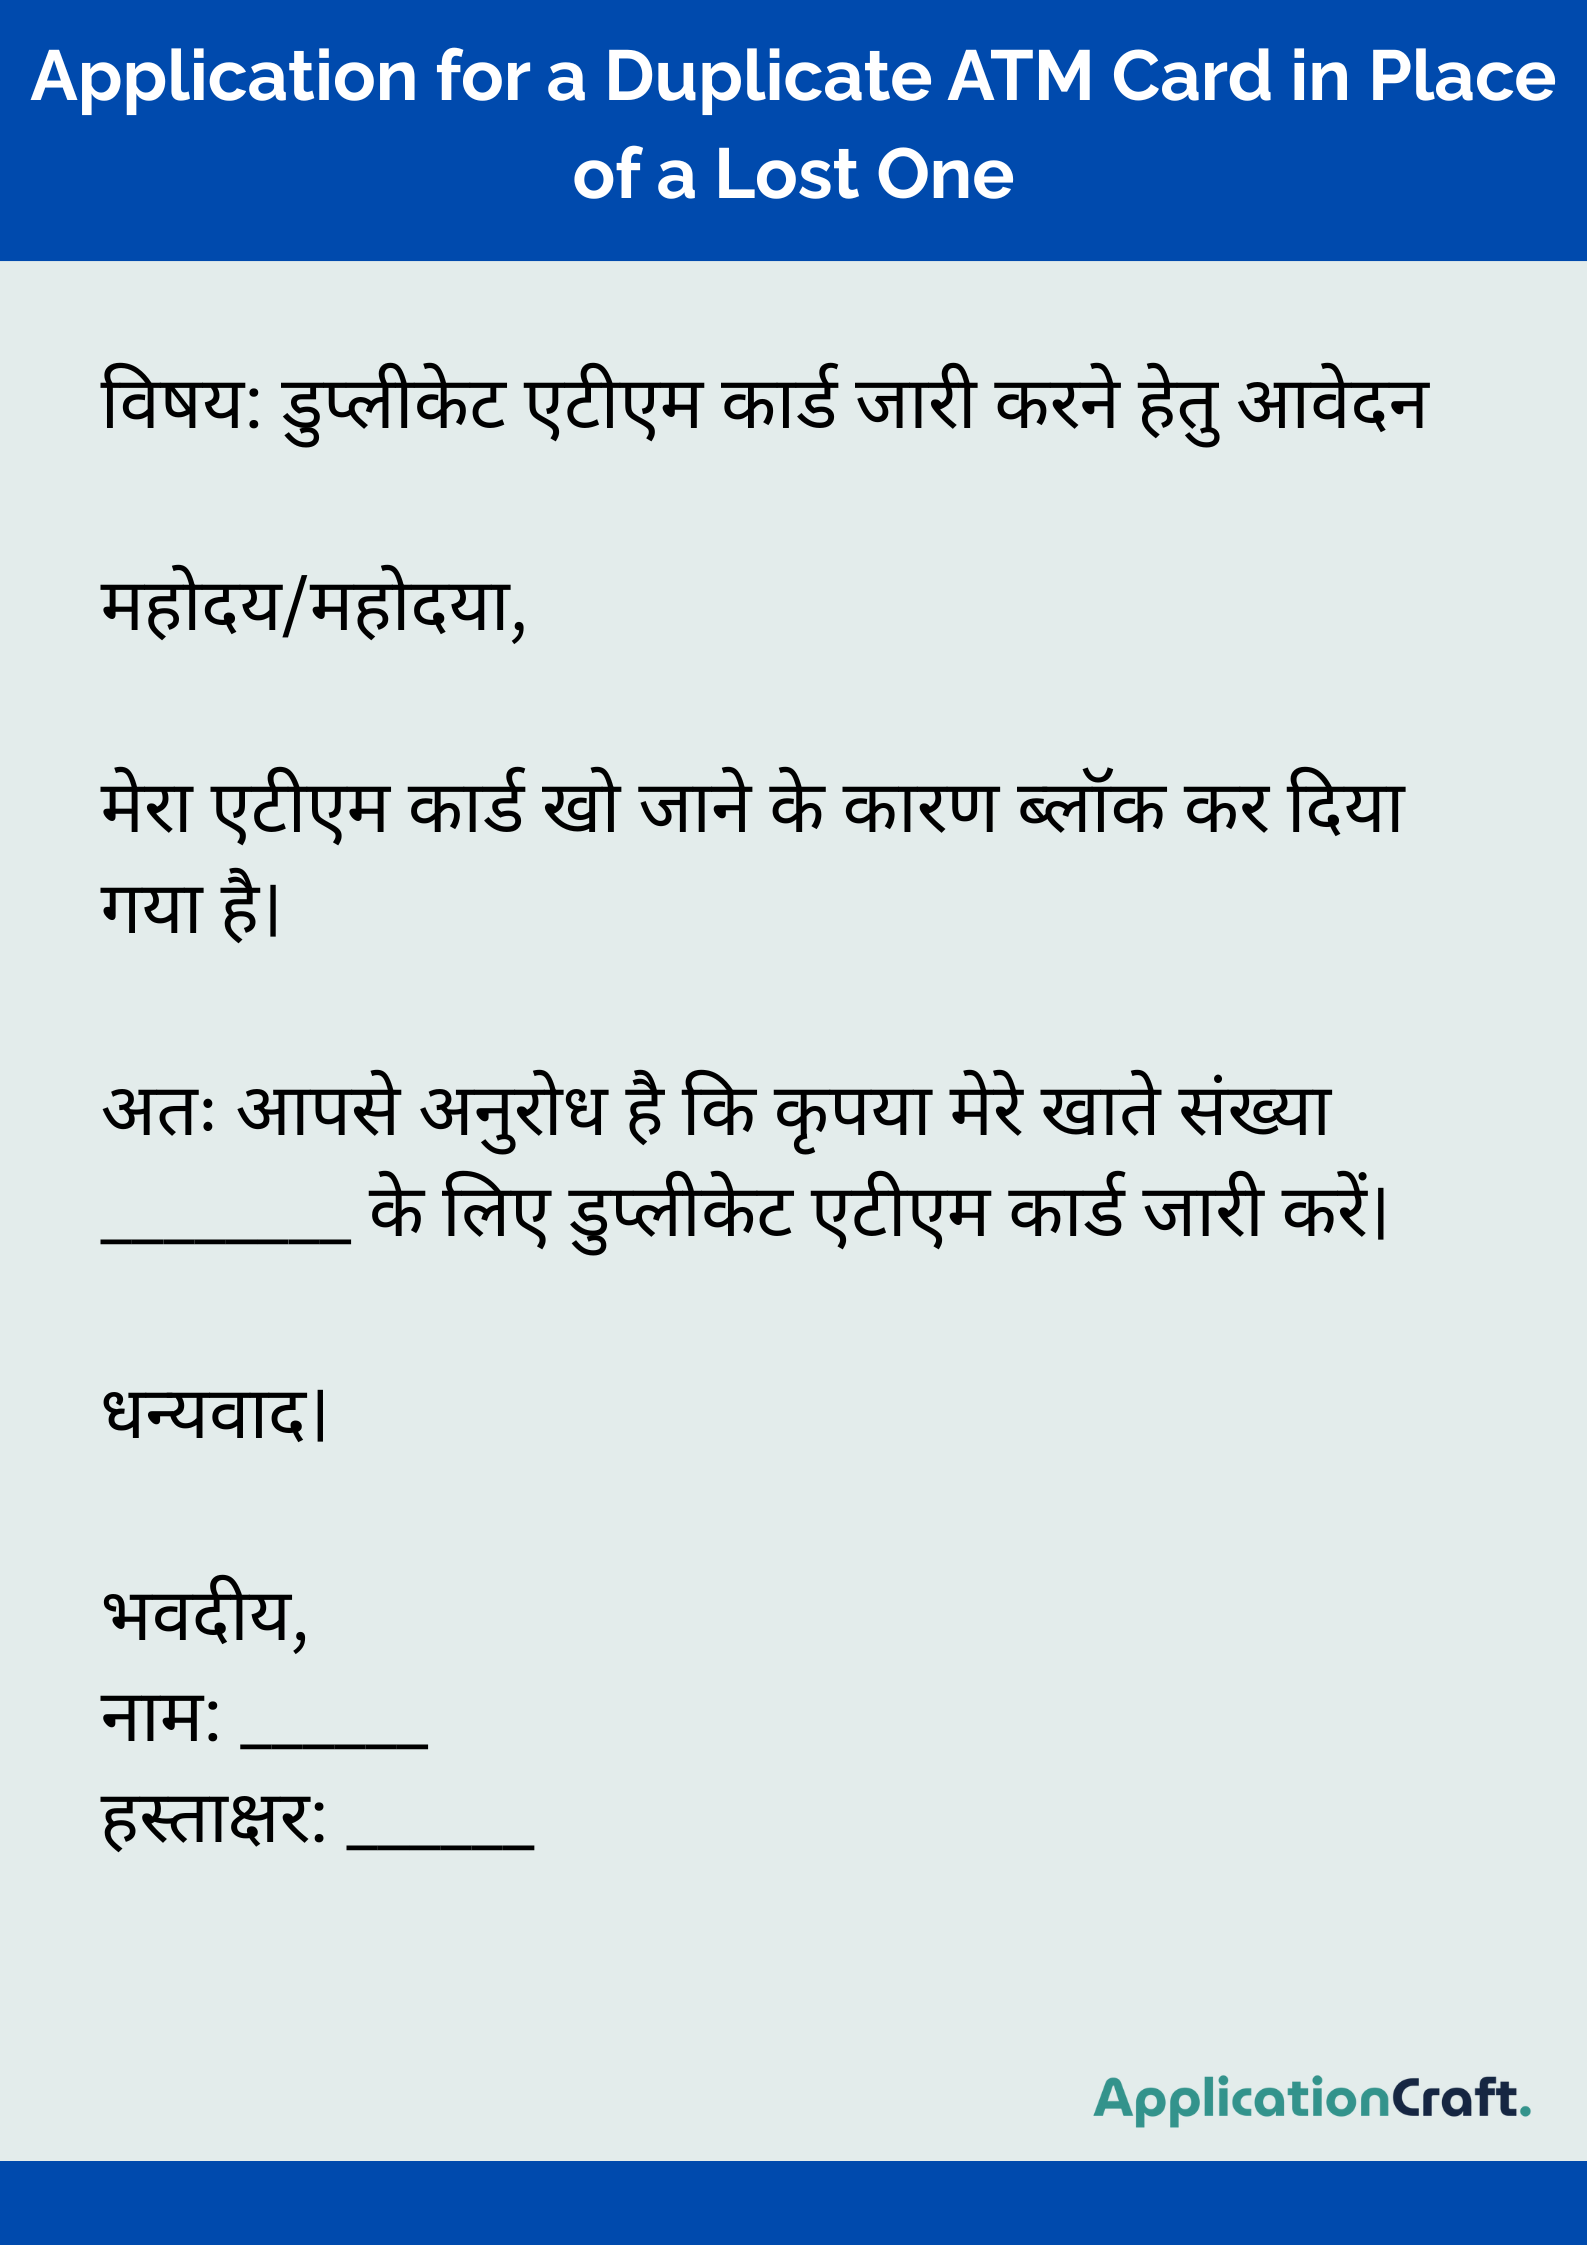 Application for a Duplicate ATM Card in Place
of a Lost One
विषय: डुप्लीकेट एटीएम कार्ड जारी करने हेतु आवेदन
महोदय/महोदया,
मेरा एटीएम कार्ड खो जाने के कारण ब्लॉक कर दिया
गया है।
अतः आपसे अनुरोध है कि कृपया मेरे खाते संख्या
________ के लिए डुप्लीकेट एटीएम कार्ड जारी करें।
धन्यवाद।
भवदीय,
नाम: ______
हस्ताक्षर: ______
ApplicationCraft.